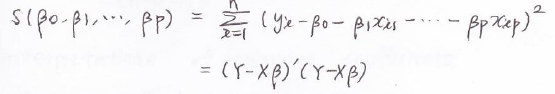 S(β0, β1, ⋯, βp) = Σ_{i=1}^{n} (yi - β0 - β1xi1 - ⋯ - βpxip)²
= (Y - Xβ)′(Y - Xβ)